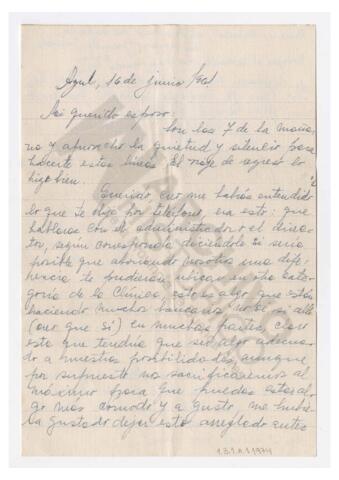 Azul, 16 de junio /961
Mi querido esposo:
Son las 7 de la maña-
na y aprovecho la quietud y silencio para
hacerte estas líneas. El viaje de regreso lo
hize bien.
Querido, creo me habías entendido
lo que te dije por teléfono, era esto: que
hablaras con el administrador o el direc-
tor, según corresponda diciéndole si sería
posible que abonando nosotros una dife-
rencia te pudieran ubicar en otra cate-
goría de la Clínica, esto es algo que están
haciendo muchos bancarios
(creo que si) en muchas partes, claro
esto que tendría que ser algo adecua-
do a nuestras posibilidades, aunque
por supuesto nos sacrificaremos al
máximo para que puedas estar al-
go más cómodo y a gusto, me hubie-
ra gustado dejar esto arreglado antes
1.3.1.A.1 1974